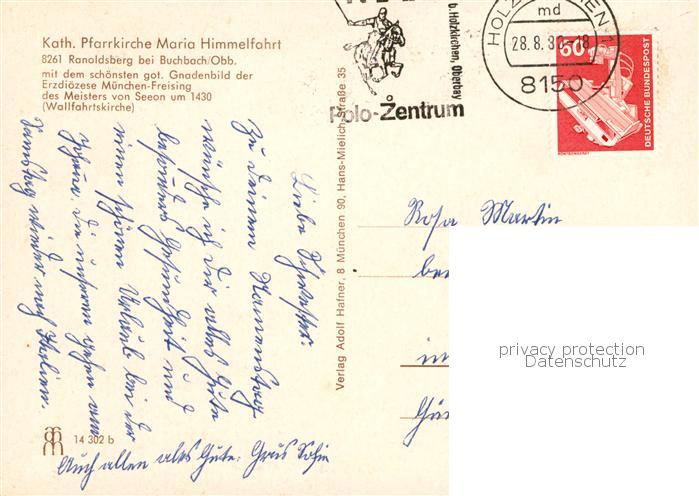 Kath. Pfarrkirche Maria Himmelfahrt
8261 Ranoldsberg bei Buchbach/Obb.
mit dem schönsten got. Gnadenbild der
Erzdiözese München-Freising
des Meisters von Seeon um 1430
(Wallfahrtskirche)
Liebe Schwester.
Zu Deinem Namenstag
wünsche ich Dir alles Gute
besonders Gesundheit und
einen schönen Urlaub bei der
Johanna. Die unseren gehen am
Samstag wieder nach Italien.
Auch allen alles Gute. Gruß Sofie
14 302 b
Verlag Adolf Hafner, 8 München 90, Hans-Mielich-Straße 35
b. Holzkirchen, Oberbay.
Polo-Zentrum
md
28.8.80-18
8150
60
DEUTSCHE BUNDESPOST
Rosa Martin
privacy protection
Datenschutz